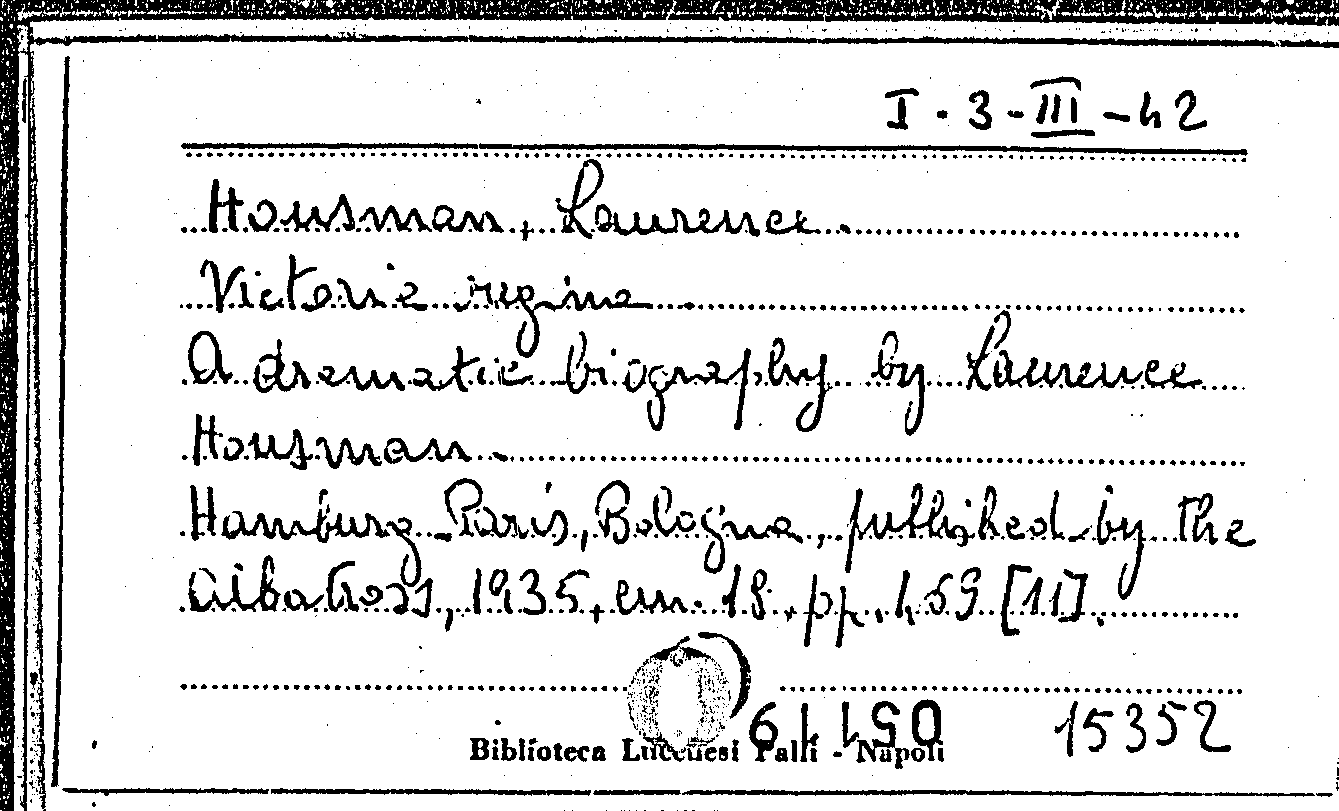 I. 3 - III - 42
Housman, Laurence.
Victoria regina.
A dramatic biography by Laurence
Housman.
Hamburg-Paris, Bologna, published by the
Albatross, 1935, cm. 18. pp. 459 [11].
15352
Biblioteca Lucchesi Palli - Napoli